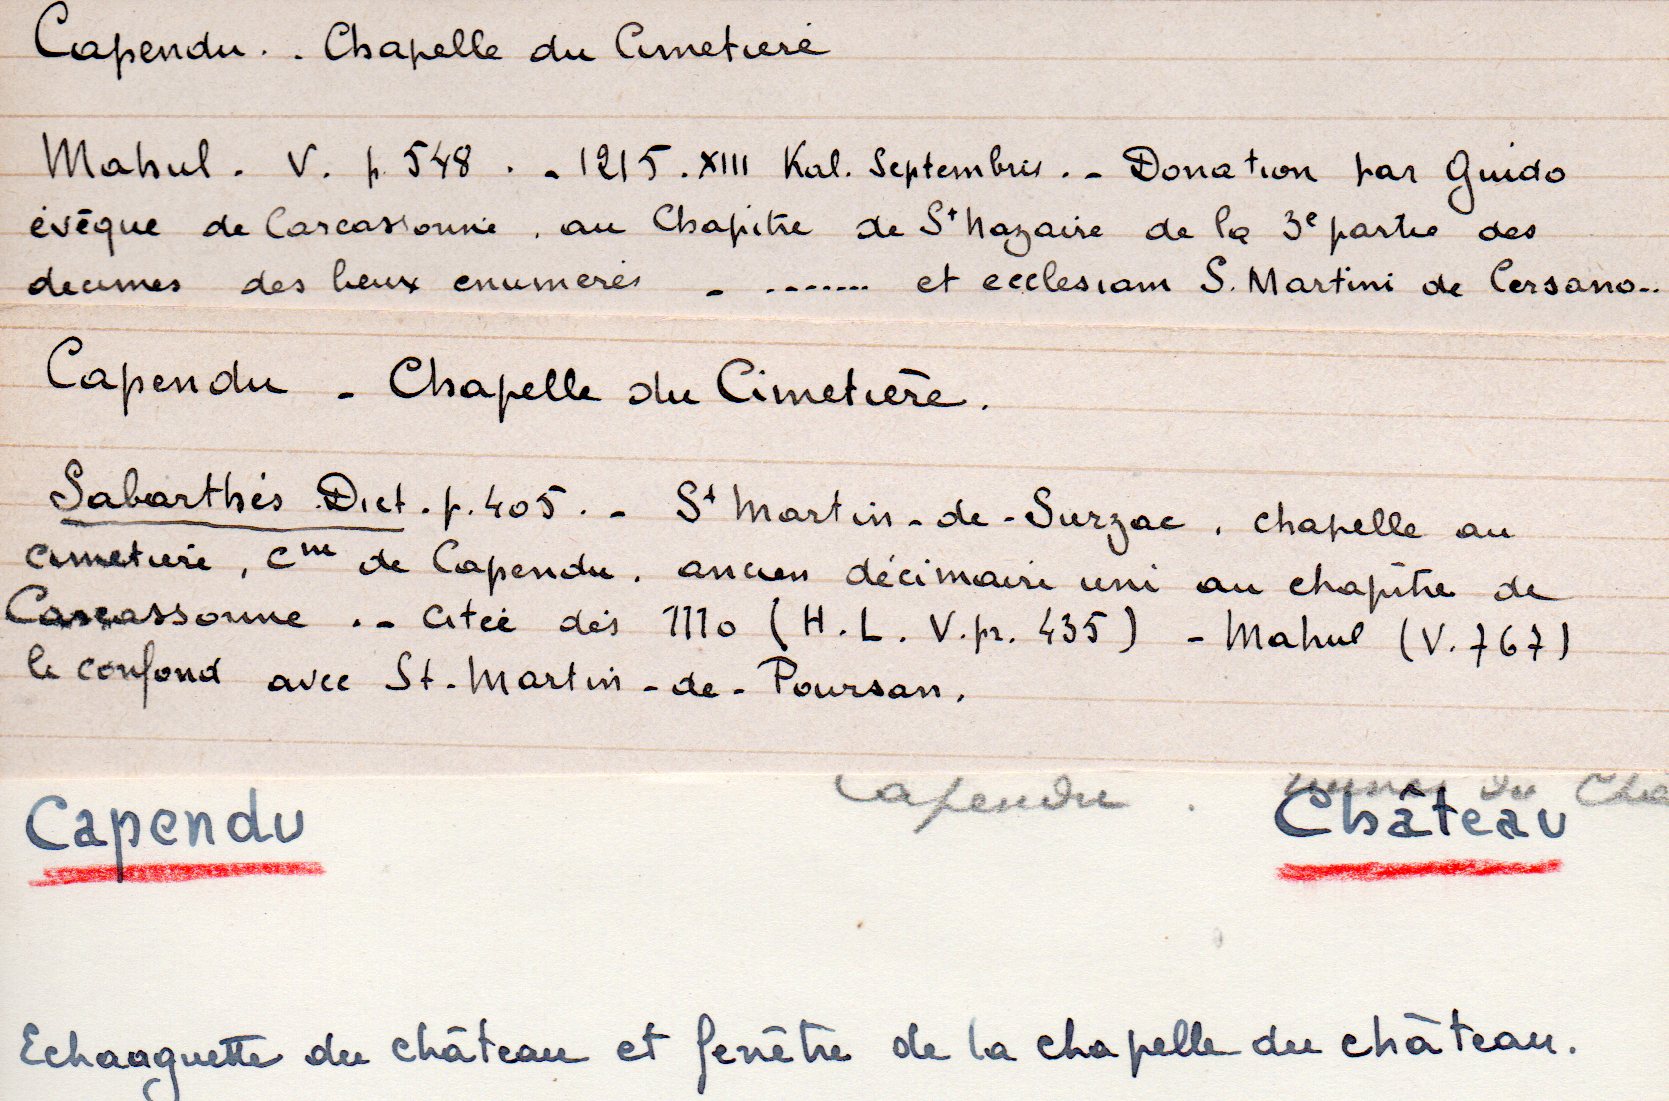 Capendu. . Chapelle du Cimetière
Mahul. V. p. 548. - 1215. XIII Kal. Septembris. - Donation par Guido
évêque de Carcassonne, au Chapitre de St Nazaire de la 3e partie des
decimes des lieux enumerés - ....... et ecclesiam S. Martini de Cersano..
Capendu - Chapelle du Cimetière.
Sabarthès Dict. p. 405. - St Martin-de-Surzac, chapelle au
cimetière, cne de Capendu, ancien décimaire uni au chapitre de
Carcassonne. - Citée dès 1110 (H. L. V. pr. 435) - Mahul (V. 767)
le confond avec St-Martin-de-Poursan.
Capendu . du Cha
Capendu Château
Echauguette du château et fenêtre de la chapelle du château.